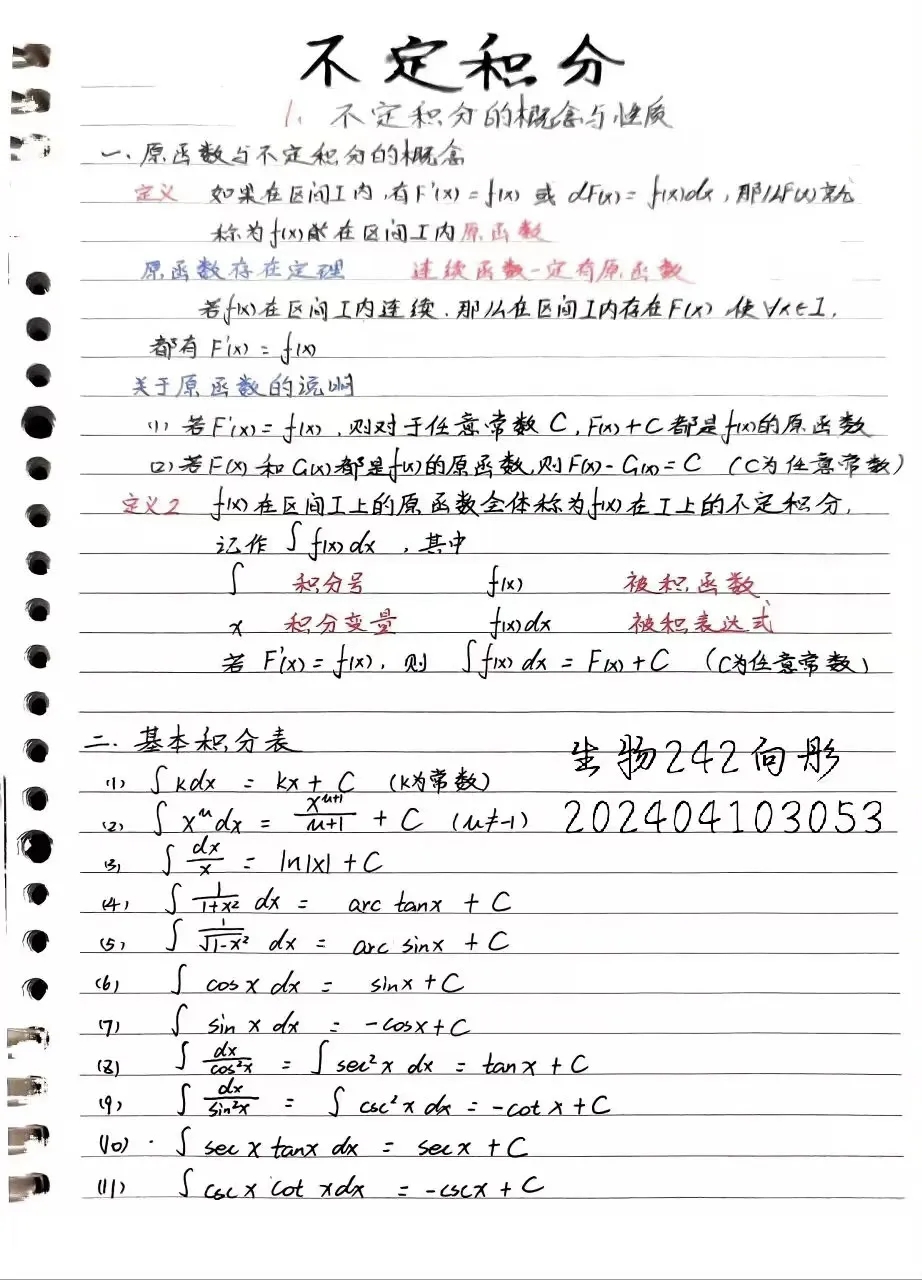 不定积分
1. 不定积分的概念与性质
一. 原函数与不定积分的概念
定义 如果在区间I内,有F'(x)=f(x) 或 dF(x)=f(x)dx,那么F(x)就
称为f(x)在区间I内原函数
原函数存在定理 连续函数一定有原函数
若f(x)在区间I内连续.那么在区间I内存在F(x),使∀x∈I,
都有 F'(x)=f(x)
关于原函数的说明
(1) 若F'(x)=f(x),则对于任意常数C,F(x)+C都是f(x)的原函数
(2) 若F(x)和G(x)都是f(x)的原函数,则F(x)-G(x)=C (C为任意常数)
定义2 f(x)在区间I上的原函数全体称为f(x)在I上的不定积分,
记作 ∫f(x)dx ,其中
∫ 积分号 f(x) 被积函数
x 积分变量 f(x)dx 被积表达式
若F'(x)=f(x),则 ∫f(x)dx=F(x)+C (C为任意常数)
二. 基本积分表
生物242向彤
(1) ∫kdx = kx+C (k为常数)
(2) ∫x^μdx = x^(μ+1)/(μ+1) + C (μ≠-1)
202404103053
(3) ∫dx/x = ln|x|+C
(4) ∫1/(1+x²) dx = arc tanx + C
(5) ∫1/√(1-x²) dx = arc sinx + C
(6) ∫cosx dx = sinx+C
(7) ∫sin x dx = -cosx+C
(8) ∫dx/cos²x = ∫sec²x dx = tanx+C
(9) ∫dx/sin²x = ∫csc²x dx = -cotx+C
(10) ∫secx tanx dx = secx+C
(11) ∫cscx cot xdx = -cscx+C